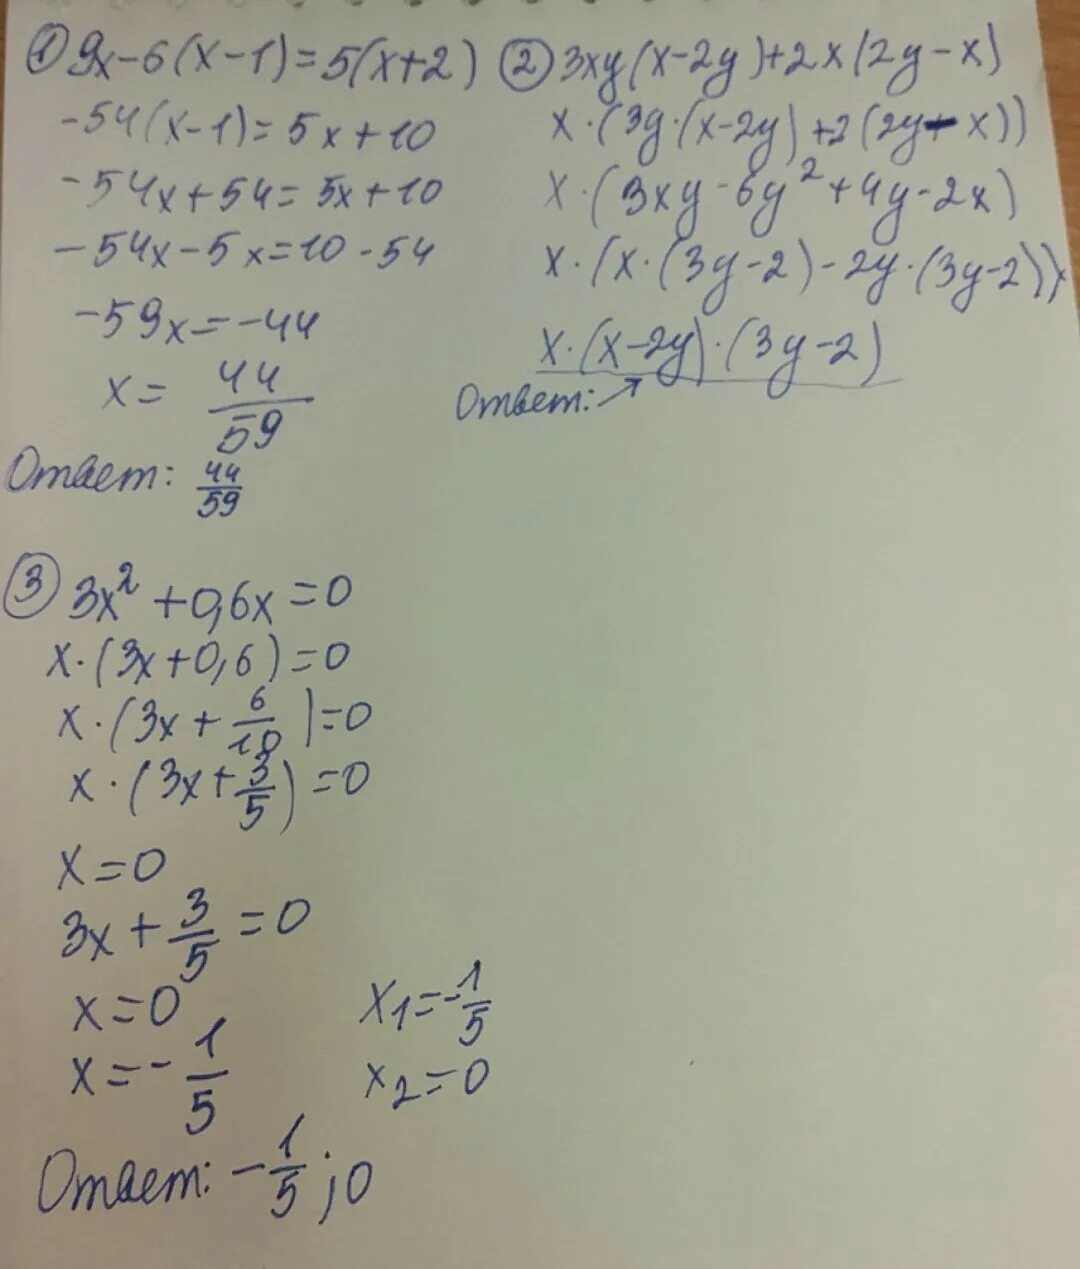 ① 9x-6(x-1)=5(x+2)
-54(x-1)=5x+10
-54x+54=5x+10
-54x-5x=10-54
-59x=-44
x= 44/59
Ответ: 44/59
② 3xy(x-2y)+2x(2y-x)
x·(3y·(x-2y)+2(2y-x))
x·(3xy-6y²+4y-2x)
x·(x·(3y-2)-2y·(3y-2))
x·(x-2y)·(3y-2)
Ответ:↗
③ 3x²+0,6x=0
x·(3x+0,6)=0
x·(3x+6/10)=0
x·(3x+3/5)=0
x=0
3x+3/5=0
x=0
x=-1/5
x₁=-1/5
x₂=0
Ответ: -1/5;0